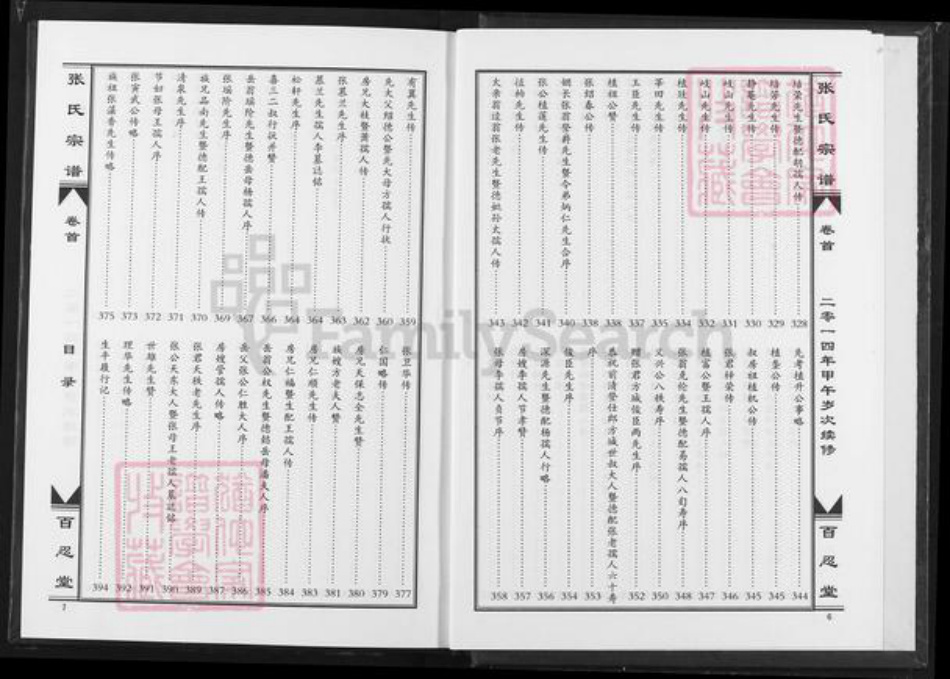 张氏宗谱
卷首
二零一四年甲午岁次续修
百忍堂
6
培荣先生暨德配胡孺人传 328
培芳先生传 329
静菴先生传 330
岐山先生传 331
岐山先生传 332
植廷先生传 334
莘田先生传 335
玉臣先生传 337
植祖公赞 338
张绍春公传 338
姻长张翁登莳先生暨令弟炳仁先生合序 340
张公植莲先生传 341
伍柏先生传 342
大亲翁送翁张老先生暨德妣孙太孺人传 343
先考植升公事略 344
植奎公传 345
叔房祖植机公传 345
张君梓荣传 346
植富公暨王孺人序 347
张翁克伦先生暨德配易孺人八旬寿序 348
义兴公八秩寿序 350
赠张君方城俊臣两先生序 352
恭祝前清登仕郎方城世叔大人暨德配张老孺人六十寿
序 353
俊臣先生序 354
深源先生暨德配杨孺人行略 356
房嫂李孺人节孝赞 357
张母李孺人贞节序 358
有翼先生传 359
先大父绍德公暨先大母方孺人行状 360
房兄大枝暨萧孺人传 362
张慕兰先生序 363
慕兰先生孺人李墓志铭 364
松轩先生序 364
喜三二叔行状并赞 366
岳翁瑶阶先生暨德岳母杨孺人序 367
张瑶阶先生序 369
族兄品南先生暨德配王孺人传 370
清泉先生序 371
节妇张母王孺人序 372
张寅武公传略 373
族祖张藻香先生传略 375
张卫华传 377
仁国略传 379
房兄天保志全先生赞 380
族嫂方老夫人赞 381
房兄仁顺先生传 383
房兄仁福暨生配王孺人传 384
岳翁公权先生暨德懿岳母潘夫人序 385
岳父张公仁胜大人序 386
房嫂管孺人传略 387
张君天秩老先生序 389
张公天东大人暨张母王老孺人墓志铭 390
世雄先生赞 391
理华先生传略 392
生平履行记 394
张氏宗谱
卷首
目录
百忍堂
7
FamilySearch